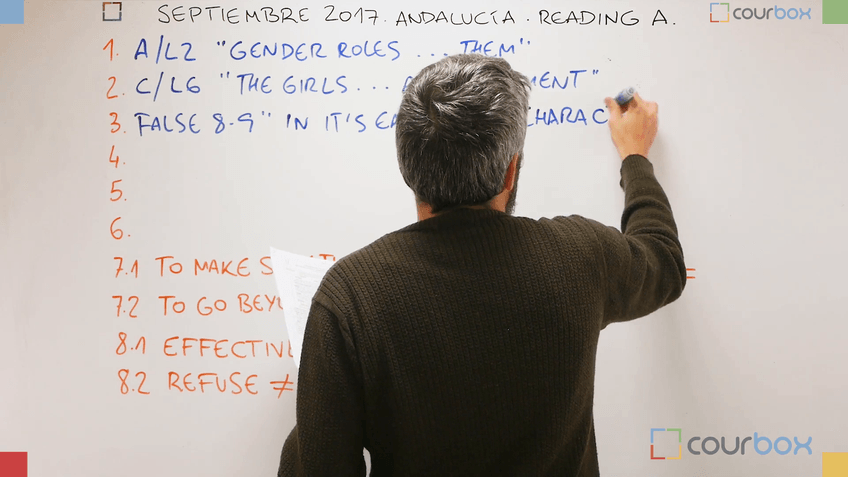 SEPTIEMBRE 2017. ANDALUCÍA. READING A.
courbox
1. A/L2 "GENDER ROLES ... THEM"
2. C/L6 "THE GIRLS ...
3. FALSE 8-9 " IN IT'S
4.
5.
6.
7.1 TO MAKE
7.2 TO GO
8.1
8.2 REFUSE ≠
courbox